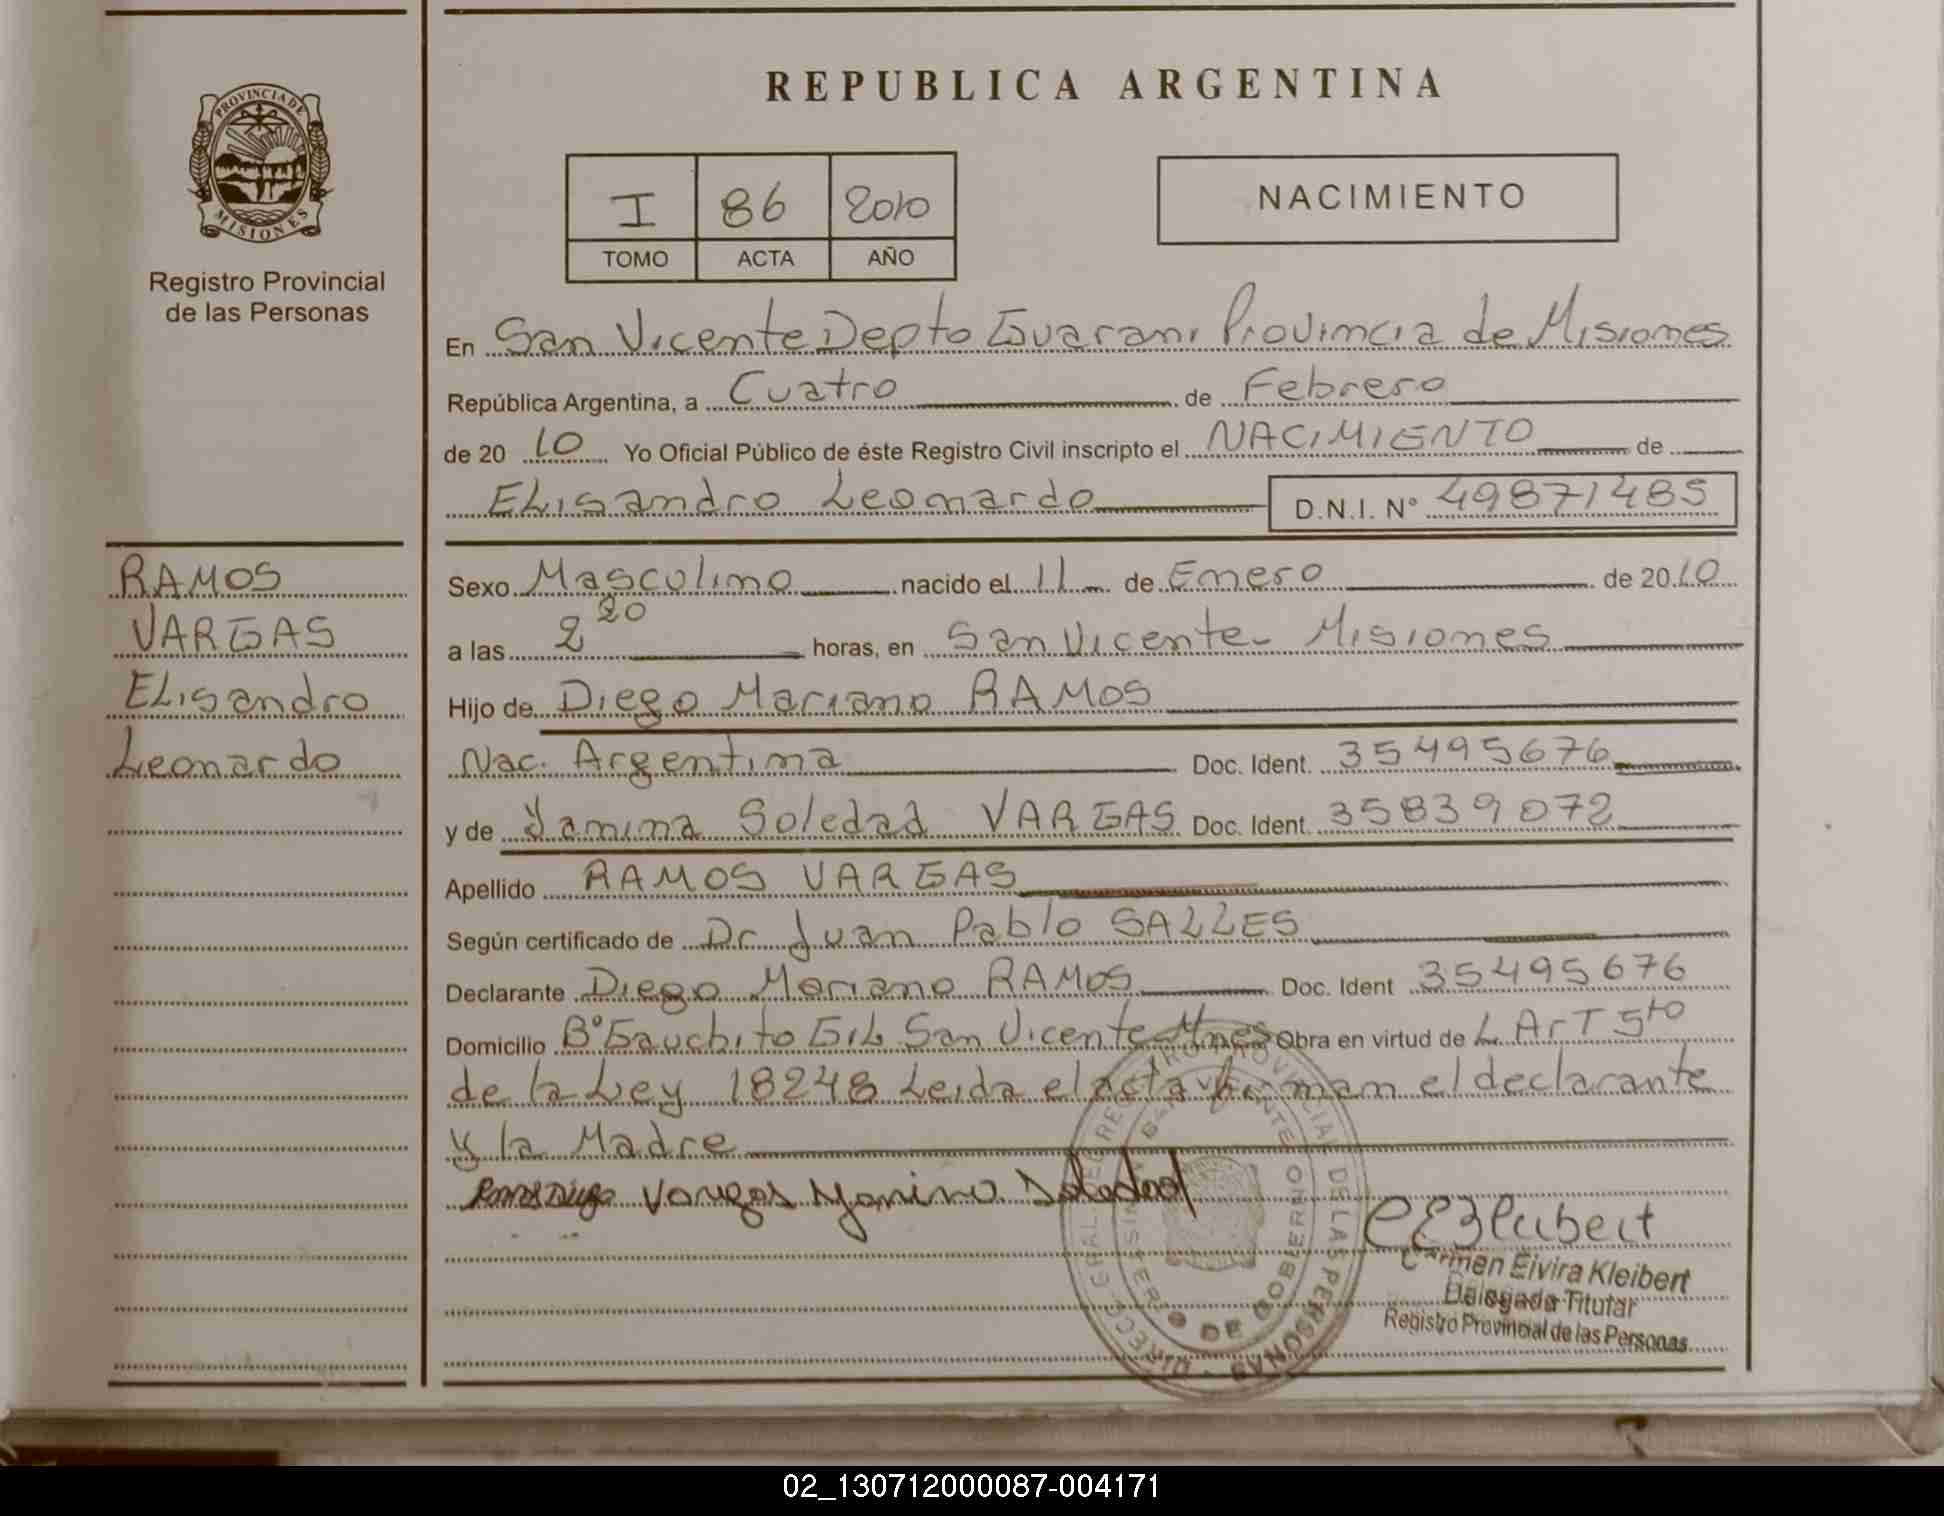 REPUBLICA ARGENTINA
PROVINCIA DE
MISIONES
Registro Provincial
de las Personas
I 86 2010
TOMO ACTA AÑO
NACIMIENTO
En San Vicente Depto Guarani Provincia de Misiones
República Argentina, a Cuatro de Febrero
de 20 10 Yo Oficial Público de éste Registro Civil inscripto el NACIMIENTO de
ELisandro Leonardo D.N.I. Nº 49871485
RAMOS
VARGAS
ELisandro
Leonardo
Sexo Masculino nacido el 11 de Enero de 2010
a las 2 20 horas, en San Vicente - Misiones
Hijo de Diego Mariano RAMOS
Nac. Argentina Doc. Ident. 35495676
y de Yanina Soledad VARGAS Doc. Ident. 35839072
Apellido RAMOS VARGAS
Según certificado de Dr Juan Pablo SALLES
Declarante Diego Mariano RAMOS Doc. Ident 35495676
Domicilio Bº Gauchito GiL San Vicente Mnes Obra en virtud de L ArT 5to
de la Ley 18248 Leida el acta firman el declarante
y la Madre
Ramos Diego Vargas Yanina Soledad
Carmen Elvira Kleibert
Delegada Titular
Registro Provincial de las Personas
02_130712000087-004171